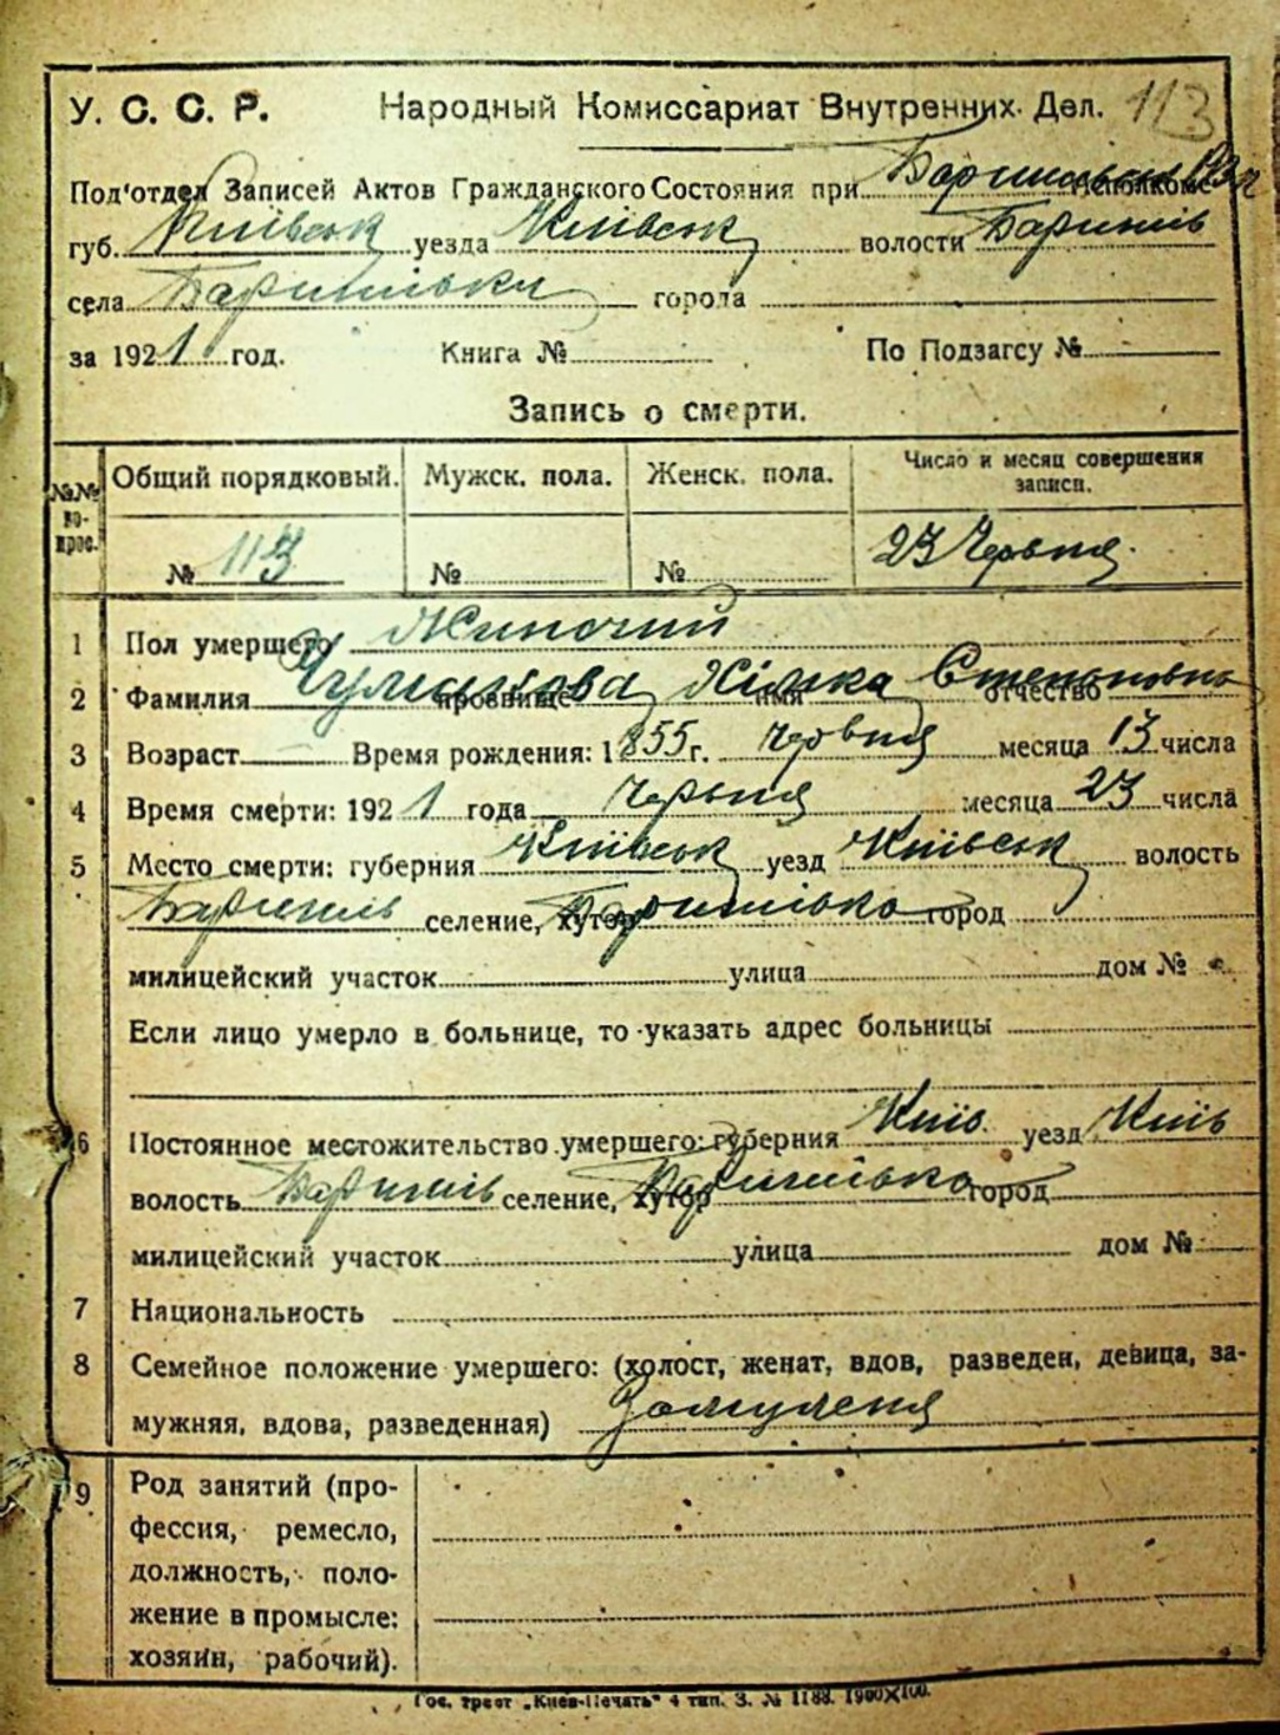 У. С. С. Р. Народный Комиссариат Внутренних Дел. 113
Под'отдел Записей Актов Гражданского Состояния при
губ. Київськ уезда Київськ волости Баришів
села Баришівки города
за 1921 год. Книга № По Подзагсу №
Запись о смерти.
№№ вопрос. Общий порядковый. Мужск. пола. Женск. пола. Число и месяц совершения записи.
№ 113 № № 23 Червня.
1 Пол умершего Жиночий
2 Фамилия прозвище имя Хімка отчество Степановна
3 Возраст Время рождения: 1855 г. червня месяца 13 числа
4 Время смерти: 1921 года Червня месяца 23 числа
5 Место смерти: губерния Київськ уезд Київськ волость
Баришів селение, хутор Баришівка город
милицейский участок улица дом №
Если лицо умерло в больнице, то указать адрес больницы
6 Постоянное местожительство умершего: губерния Київ. уезд Київ
волость Баришів селение, хутор Баришівка город
милицейский участок улица дом №
7 Национальность
8 Семейное положение умершего: (холост, женат, вдов, разведен, девица, за-
мужняя, вдова, разведенная) Замужня
9 Род занятий (про-
фессия, ремесло,
должность, поло-
жение в промысле:
хозяин, рабочий).
Гос. трест „Киев-Печать" 4 тип. З. № 1188. 1900×100.